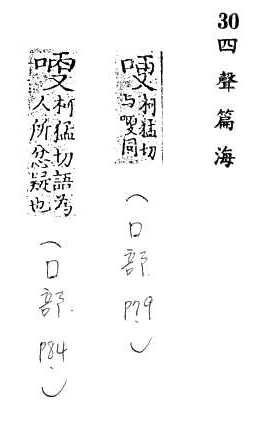 30四聲篇海
柯猛切
与㖫同
(口部 P79)
柯猛切語為
人所忿疑也
(口部 P84)